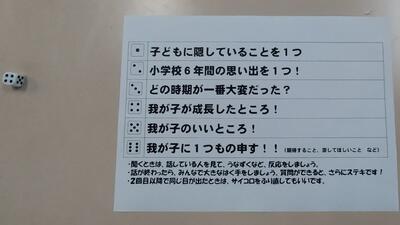 子どもに隠していることを1つ
小学校6年間の思い出を1つ!
どの時期が一番大変だった?
我が子が成長したところ!
我が子のいいところ!
我が子に1つもの申す!!(期待すること、直してほしいこと など)
・聞くときは、話している人を見て、うなずくなど、反応をしましょう。
・話が終わったら、みんなで大きなはく手をしましょう。質問ができると、さらにステキです!
・2回目以降で同じ目が出たときは、サイコロをふり直してもいいです。